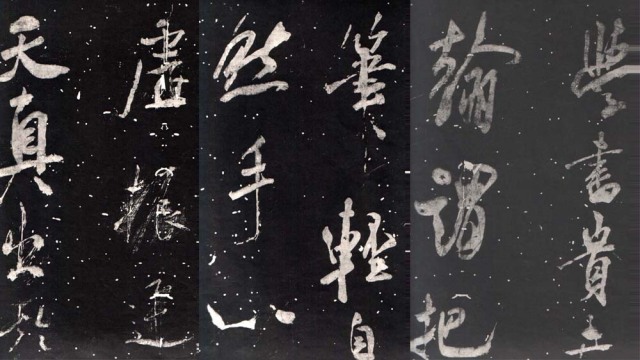 學書貴弄
翰謂把
筆輕自
然手心
虛振迅
天真出於